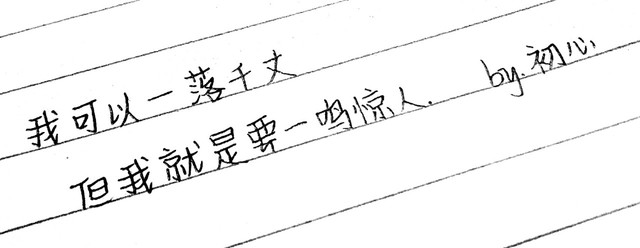 我可以一落千丈
但我就是要一鸣惊人.
by.初心